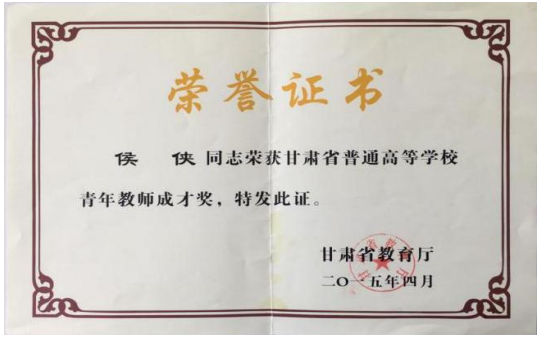 荣誉证书
侯 侠 同志荣获甘肃省普通高等学校
青年教师成才奖，特发此证。
甘肃省教育厅
二〇一五年四月